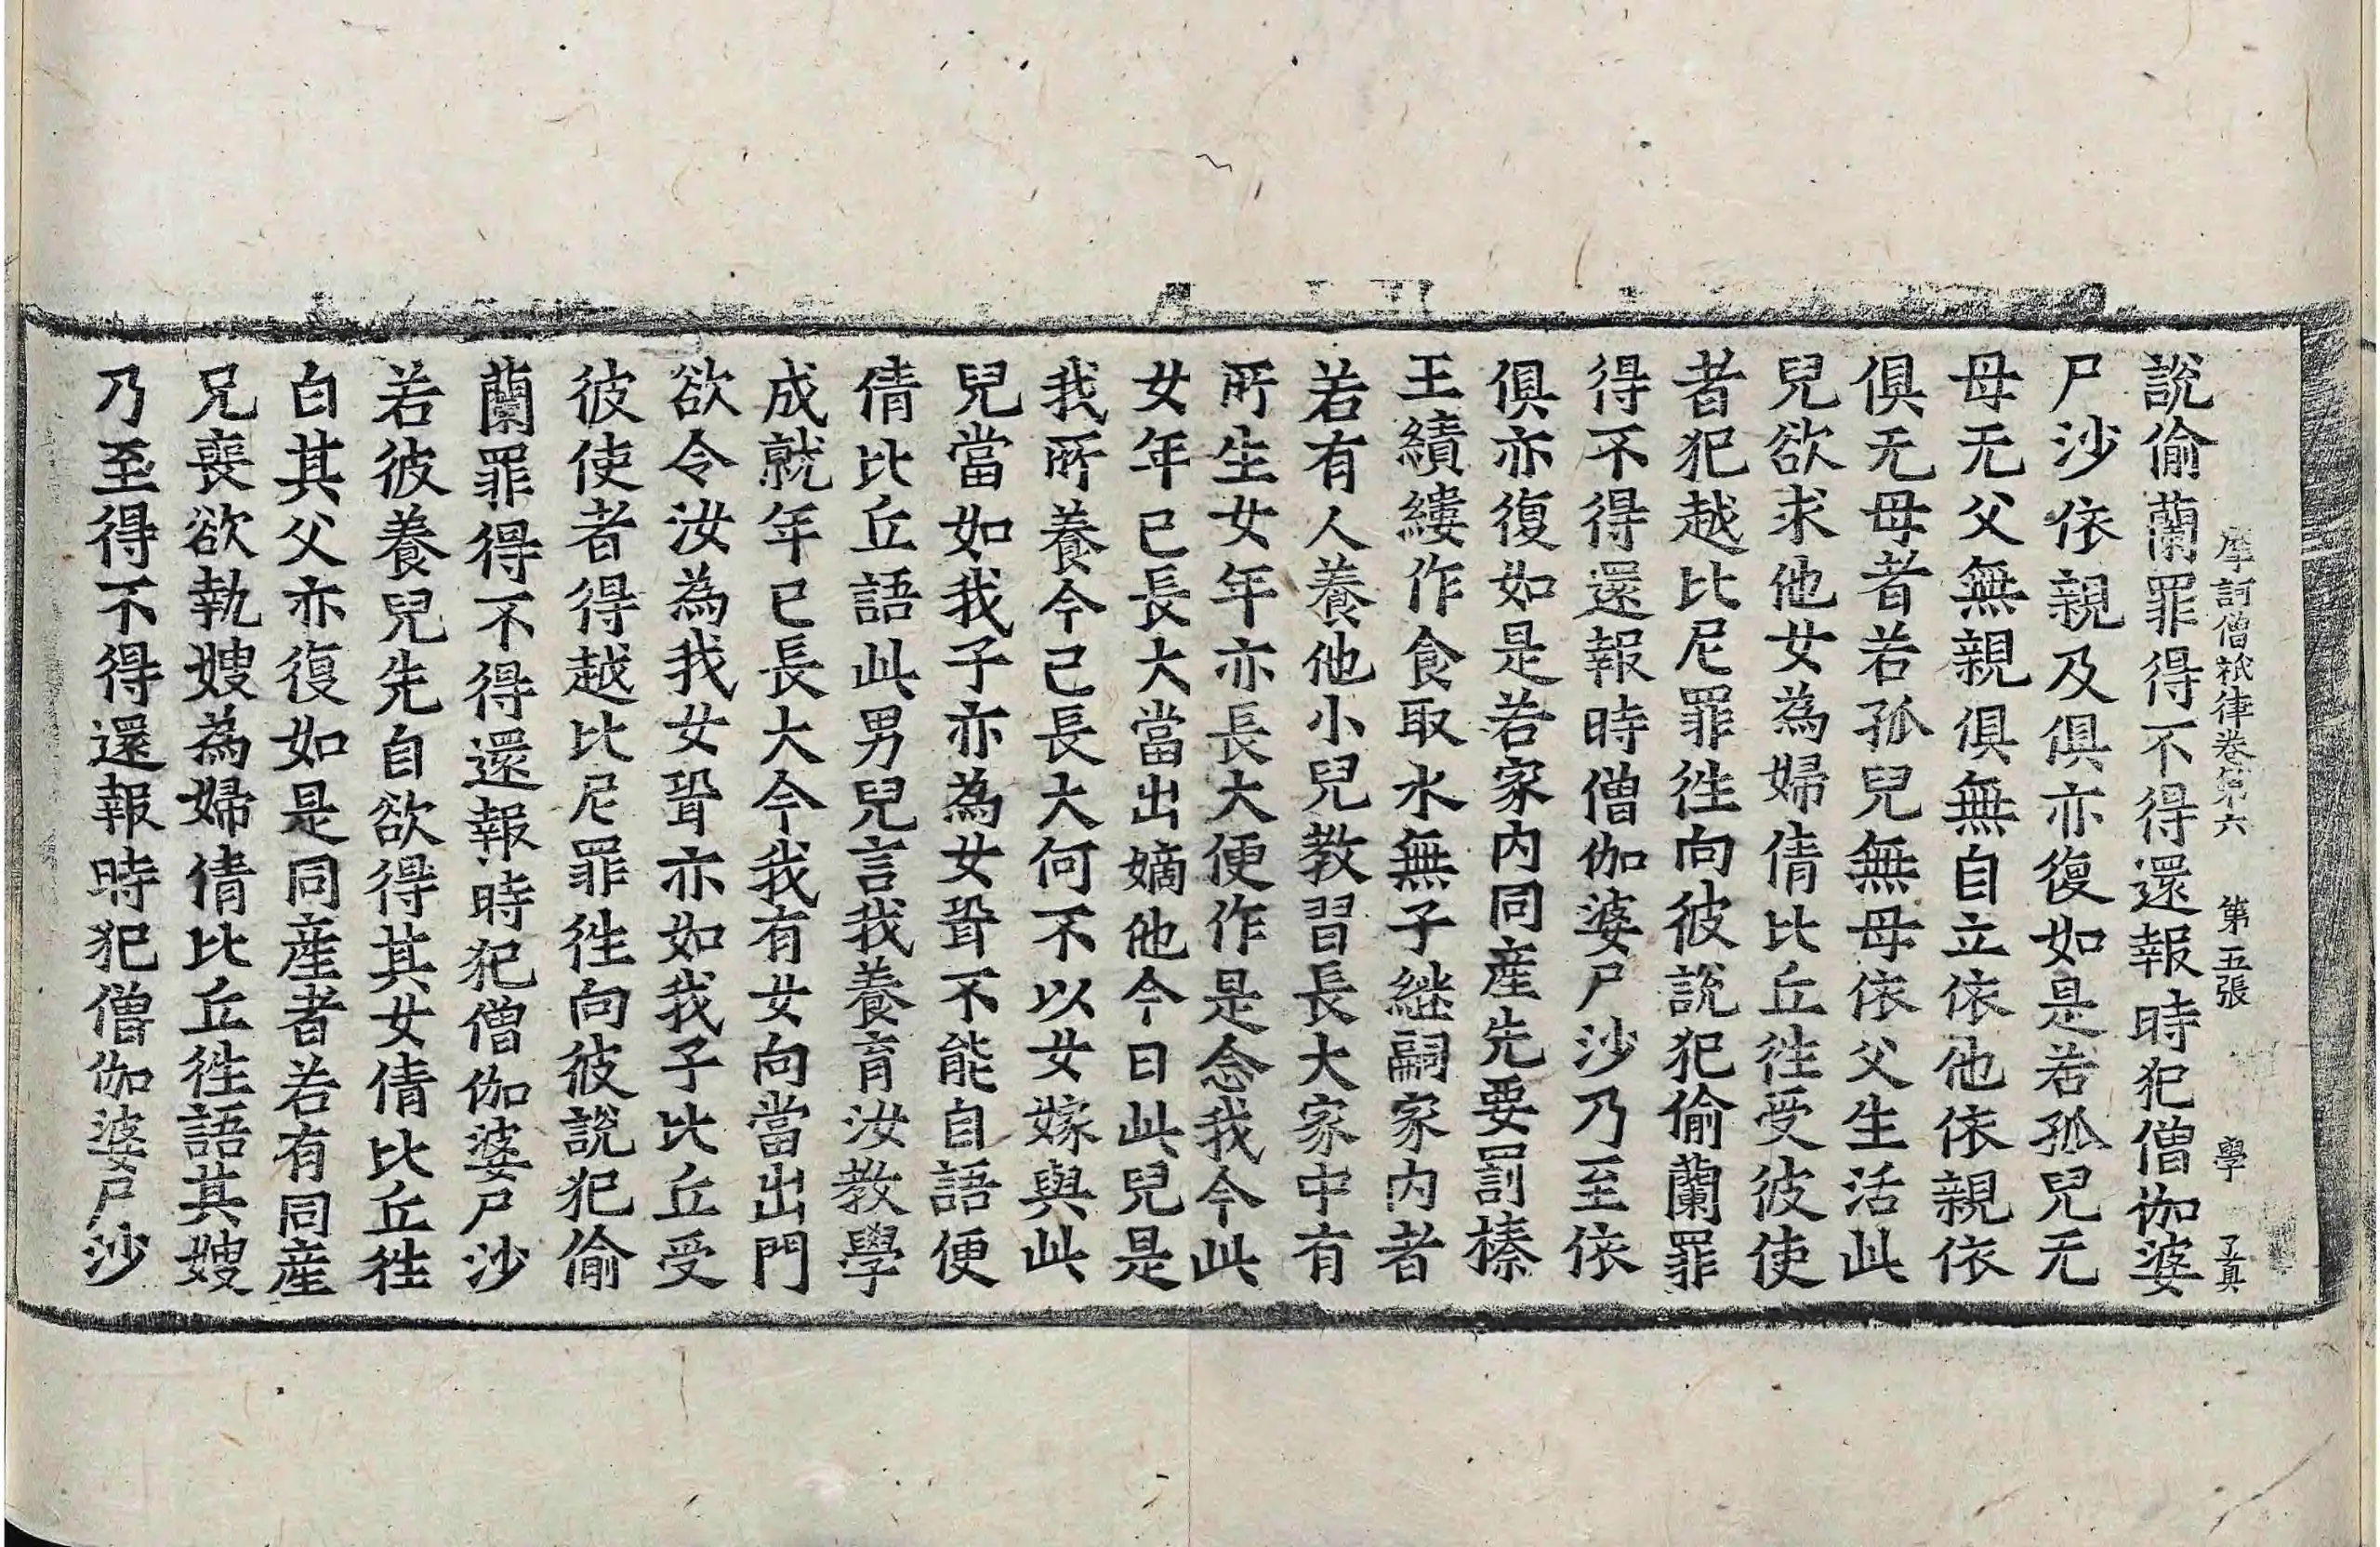 摩訶僧祇律卷第六 第五張 學 了眞
說偷蘭罪得不得還報時犯僧伽婆
尸沙依親及俱亦復如是若孤兒无
母无父無親俱無自立依他依親依
俱无母者若孤兒無母依父生活此
兒欲求他女為婦倩比丘往受彼使
者犯越比尼罪往向彼說犯偷蘭罪
得不得還報時僧伽婆尸沙乃至依
俱亦復如是若家內同產先要罰榛
王績縷作食取水無子継嗣家內者
若有人養他小兒教習長大家中有
所生女年亦長大便作是念我今此
女年已長大當出嫡他今日此兒是
我所養今已長大何不以女嫁與此
兒當如我子亦為女聟不能自語便
倩比丘語此男兒言我養育汝教學
成就年已長大今我有女向當出門
欲令汝為我女聟亦如我子比丘受
彼使者得越比尼罪往向彼說犯偷
蘭罪得不得還報時犯僧伽婆尸沙
若彼養兒先自欲得其女倩比丘往
白其父亦復如是同產者若有同產
兄喪欲執嫂為婦倩比丘往語其嫂
乃至得不得還報時犯僧伽婆尸沙